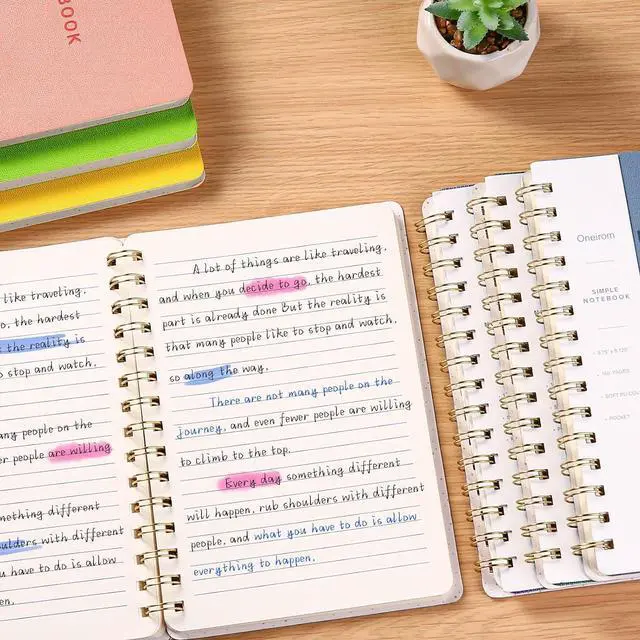 BOOK
like traveling,
o, the hardest
the reality is
o stop and watch,
any people on the
er people are willing
mething different
oulders with different
have to do is allow
en,
A lot of things are like traveling,
and when you decide to go, the hardest
part is already done But the reality is
that many people like to stop and watch,
so along the way,
There are not many people on the
journey, and even fewer people are willing
to climb to the top.
Every day something different
will happen, rub shoulders with different
people, and what you have to do is allow
everything to happen,
Oneirom
SIMPLE
NOTEBOOK
160 PAGES
POCKET